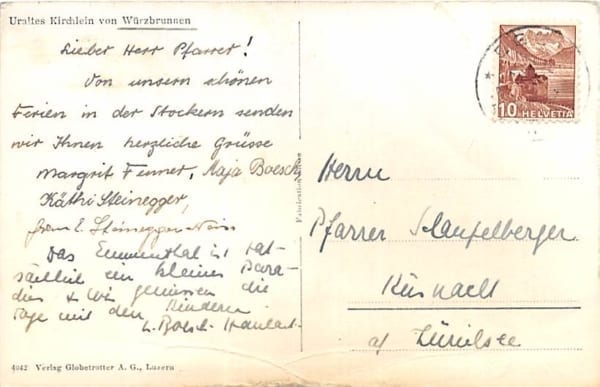 Uraltes Kirchlein von Würzbrunnen
Lieber Herr Pfarrer!
Von unsern schönen
Ferien in der Stockern senden
wir Ihnen herzliche Grüsse
Margrit Fenner, Maja Boesch
Käthi Steinegger,
Frau E. Steinegger-
Das Emmenthal ist tat-
sächlich ein kleines Para-
dies & wir geniessen die
Tage mit den Kindern
L. Boesch-
HELVETIA
10
Fabrication Suisse
Herrn
Pfarrer Staufelberger
Küsnacht
a/ Zürichsee
4042 Verlag Globetrotter A. G., Luzern